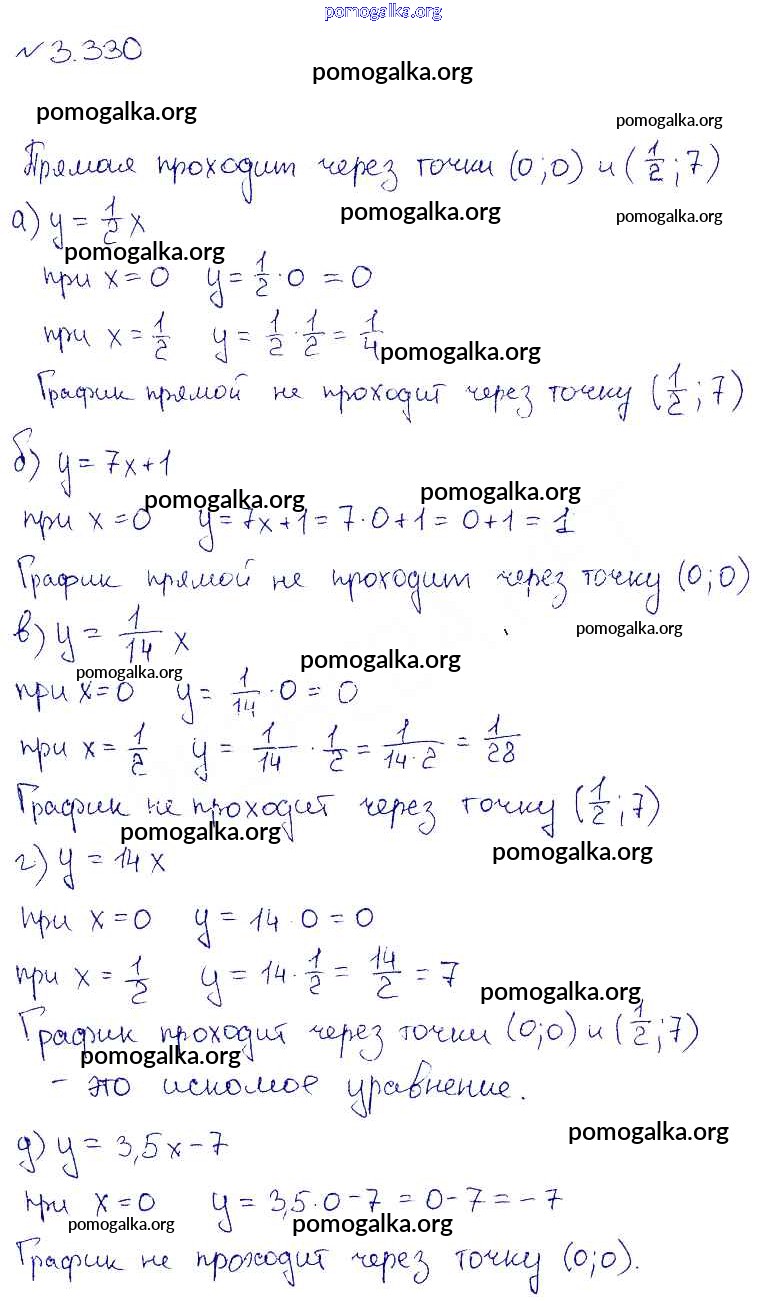 pomogalka.org
№ 3.330
pomogalka.org
pomogalka.org
pomogalka.org
Прямая проходит через точки (0;0) и (1/2;7)
pomogalka.org
pomogalka.org
а) y = 1/2 x
pomogalka.org
при x=0 y = 1/2 · 0 = 0
при x = 1/2 y = 1/2 · 1/2 = 1/4
pomogalka.org
График прямой не проходит через точку (1/2;7)
б) y = 7x+1
pomogalka.org
pomogalka.org
при x=0 y=7x+1=7·0+1=0+1=1
График прямой не проходит через точку (0;0)
pomogalka.org
в) y = 1/14 x
pomogalka.org
pomogalka.org
при x=0 y = 1/14 · 0 = 0
при x = 1/2 y = 1/14 · 1/2 = 1/14·2 = 1/28
График не проходит через точку (1/2;7)
pomogalka.org
pomogalka.org
г) y = 14x
при x=0 y = 14·0=0
при x = 1/2 y = 14 · 1/2 = 14/2 = 7
pomogalka.org
График проходит через точки (0;0) и (1/2;7)
pomogalka.org
- это искомое уравнение.
pomogalka.org
д) y = 3,5x-7
при x=0 y = 3,5·0-7 = 0-7=-7
pomogalka.org
pomogalka.org
График не проходит через точку (0;0).